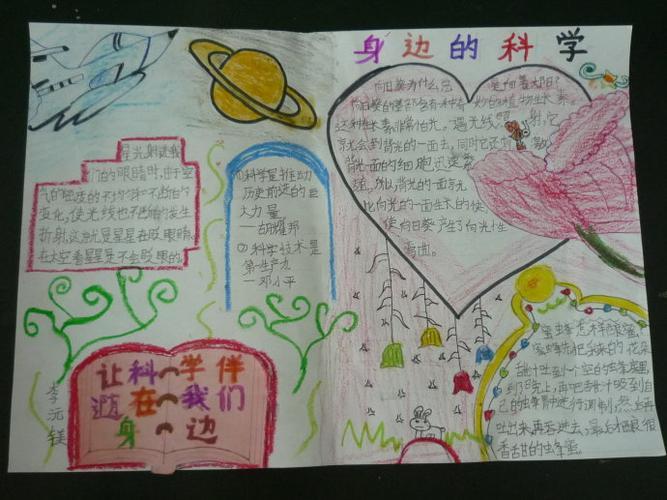 身边的科学
向日葵为什么总是向着太阳?
向日葵的茎部含有一种奇妙的植物生长素。
这种生长素非常怕光。遇光线照射,它
就会到背光的一面去,同时它还刺激
背光一面的细胞迅速繁
殖,所以背光的一面就
比向光的一面生长的快,
使向日葵产生了向光性
弯曲。
星光射进我
们的眼睛时,由于空
气的密度的不均匀和不断的
变化,使光线也不断的发生
折射,这就是星星在眨眼睛。
在太空看星星是不会眨眼的。
①科学是推动
历史前进的巨
大力量
—胡耀邦
②科学技术是
第一生产力
—邓小平
让科学伴
随在我们
身边
李沅镁
蜜蜂怎样酿蜜
蜜蜂先把采来的花朵
甜汁吐到一个空的蜂房里,
到了晚上,再把甜汁吸到自
己的蜜胃中进行调制,然后再
吐出来,再吞进去,最后才酿很
香甜的蜂蜜。